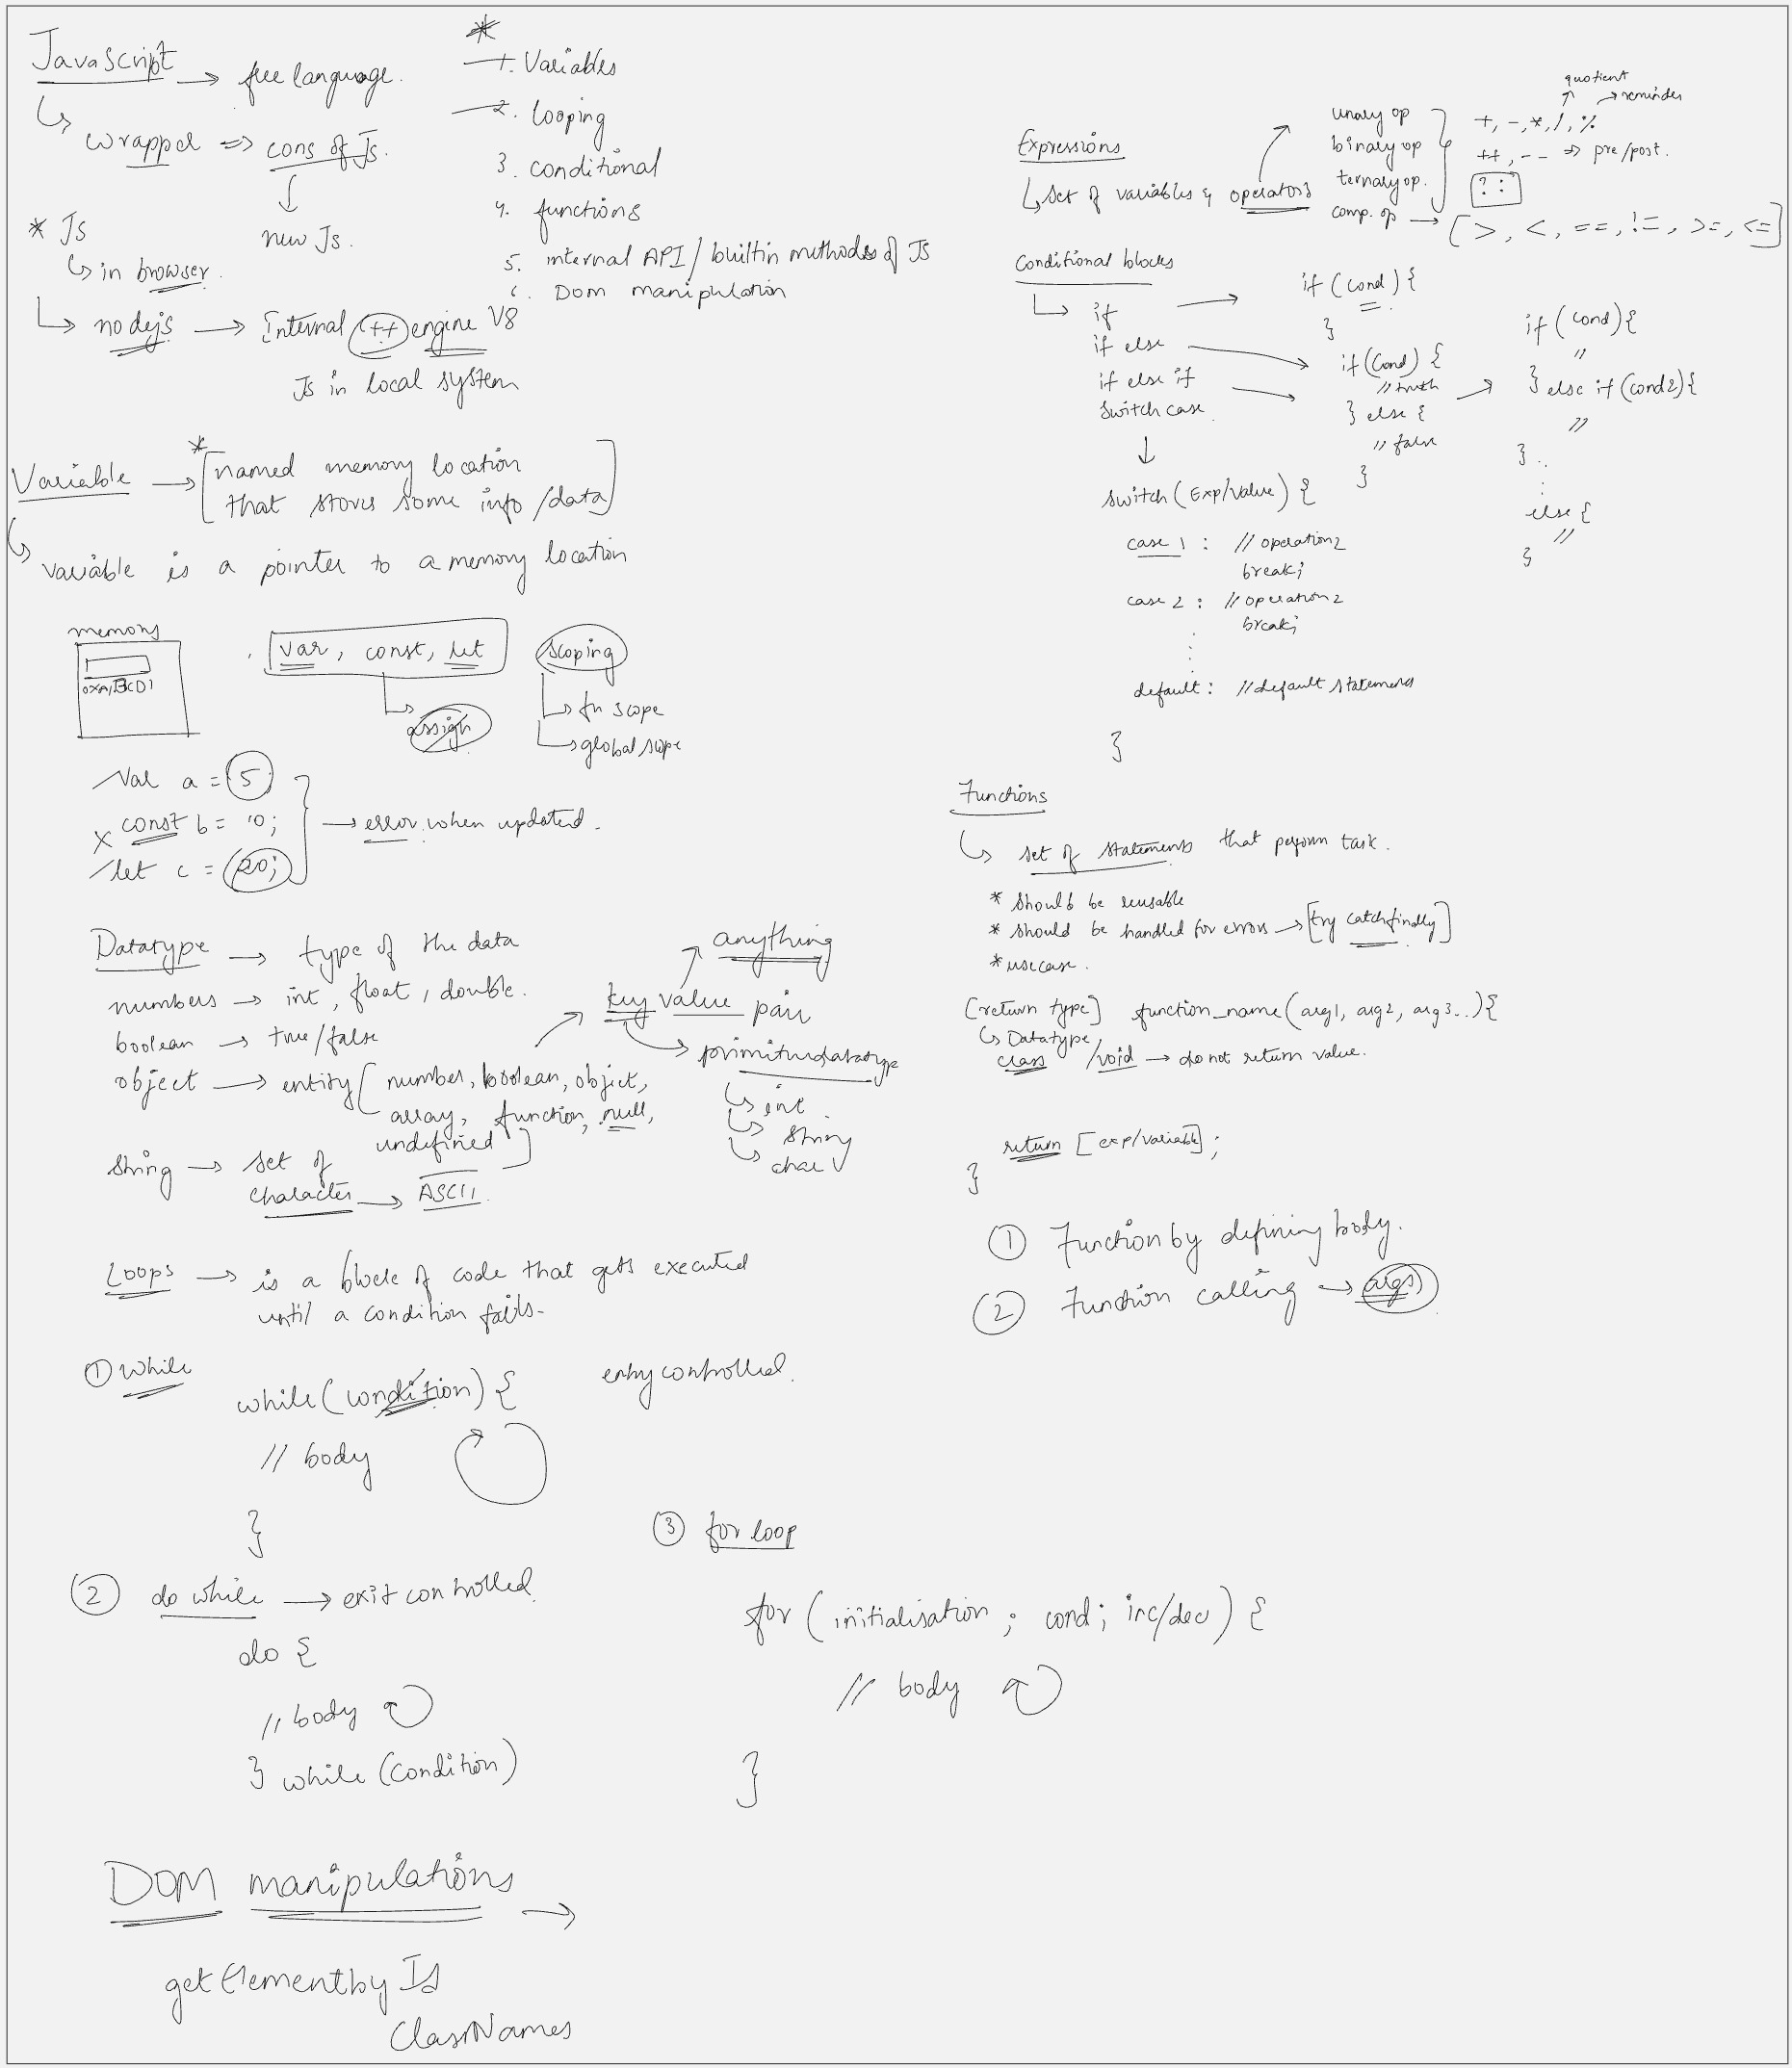 JavaScript → free language.
wrapped => cons of Js.
new Js.
* Js
in browser.
nodejs → Internal C++ engine V8
Js in local system
*
1. Variables
2. looping
3. conditional
4. functions
5. internal API / builtin methodes of JS
6. Dom manipulation
Variable → * [named memory location
that stores some info/data]
variable is a pointer to a memory location
memory
0xA1BCD1
var, const, let
assign
scoping
fn scope
global scope
var a = 5
x const b = 10;
let c = 20;
→ error when updated.
Datatype → type of the data
numbers → int, float, double.
boolean → true/false
object → entity [number, boolean, object,
array, function, null,
undefined]
key value pair
anything
primitive datatype
int
string
char
string → set of
character → ASCII.
Loops → is a block of code that gets executed
until a condition fails.
① while
while (condition) {
entry controlled.
// body
}
② do while → exit controlled.
do {
// body
} while (condition)
③ for loop
for (initialisation ; cond; inc/dec) {
// body
}
DOM manipulations →
getElementby Id
ClassNames
Expressions
set of variables & operators
unary op
binary op
ternary op.
comp. op → [>, <, ==, !=, >=, <=]
quotient
reminder
+, -, *, /, %
++, -- => pre/post.
? :
Conditional blocks
if
if else
if else if
Switch case
if (cond) {
}
if (cond) {
// truth
} else {
// false
}
if (cond) {
//
} else if (cond2) {
//
} ..
else {
//
}
switch (Exp/value) {
case 1 : // operation2
break;
case 2 : // operation2
break;
default : // default statements
}
Functions
set of statements that perform task.
* should be reusable
* should be handled for errors → [try catch finally]
* usecase.
[return type] function_name (arg1, arg2, arg3..) {
Datatype,
class /void → do not return value.
return [exp/variable];
}
① Function by defining body.
② Function calling → args